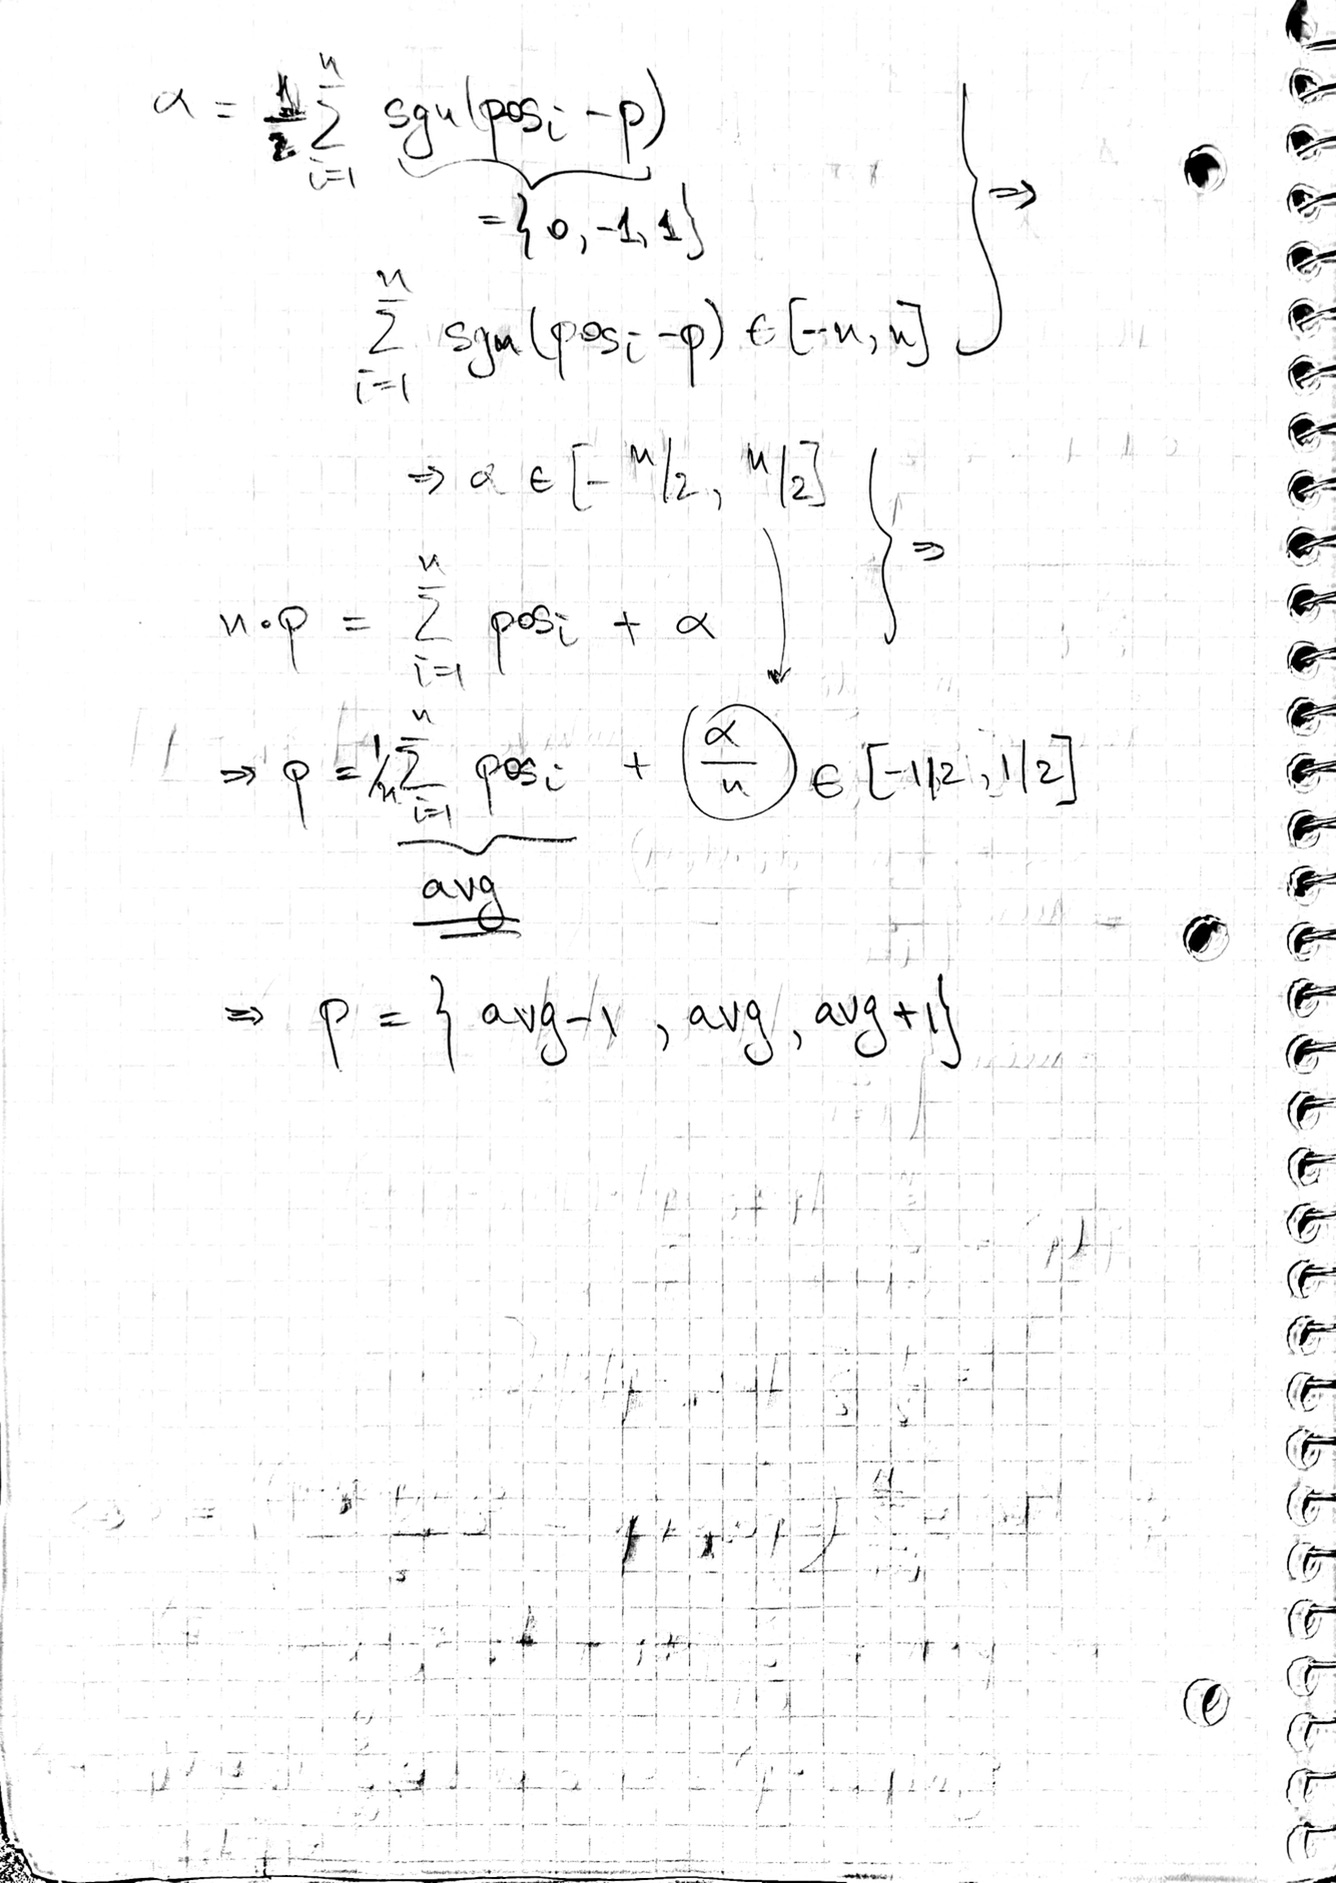 α = 1/2 Σ_{i=1}^{n} sgn(pos_i - p) } ⇒
= {0, -1, 1}
Σ_{i=1}^{n} sgn(pos_i - p) ∈ [-n, n]
⇒ α ∈ [-n/2, n/2] } ⇒
n·p = Σ_{i=1}^{n} pos_i + α
⇒ p = 1/n Σ_{i=1}^{n} pos_i + (α/n) ∈ [-1/2, 1/2]
avg
⇒ p = {avg-1, avg, avg+1}